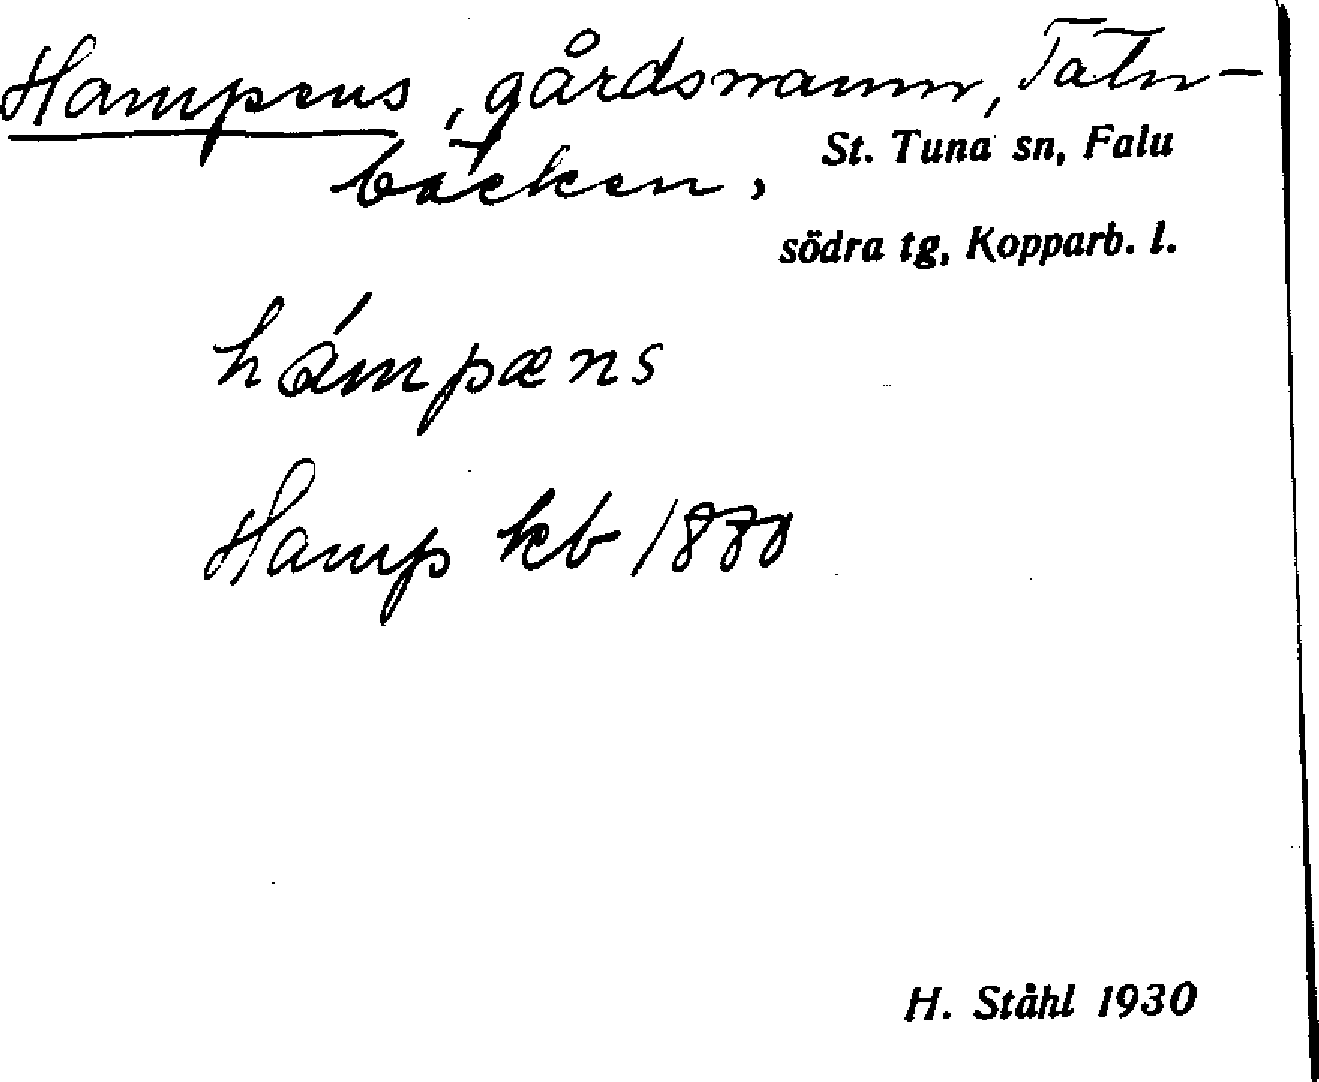 Hampens, gårdsnamn,
bäcken,
St. Tuna sn, Falu
södra tg, Kopparb. l.
hámpæns
Hamp kb 1870
H. Ståhl 1930